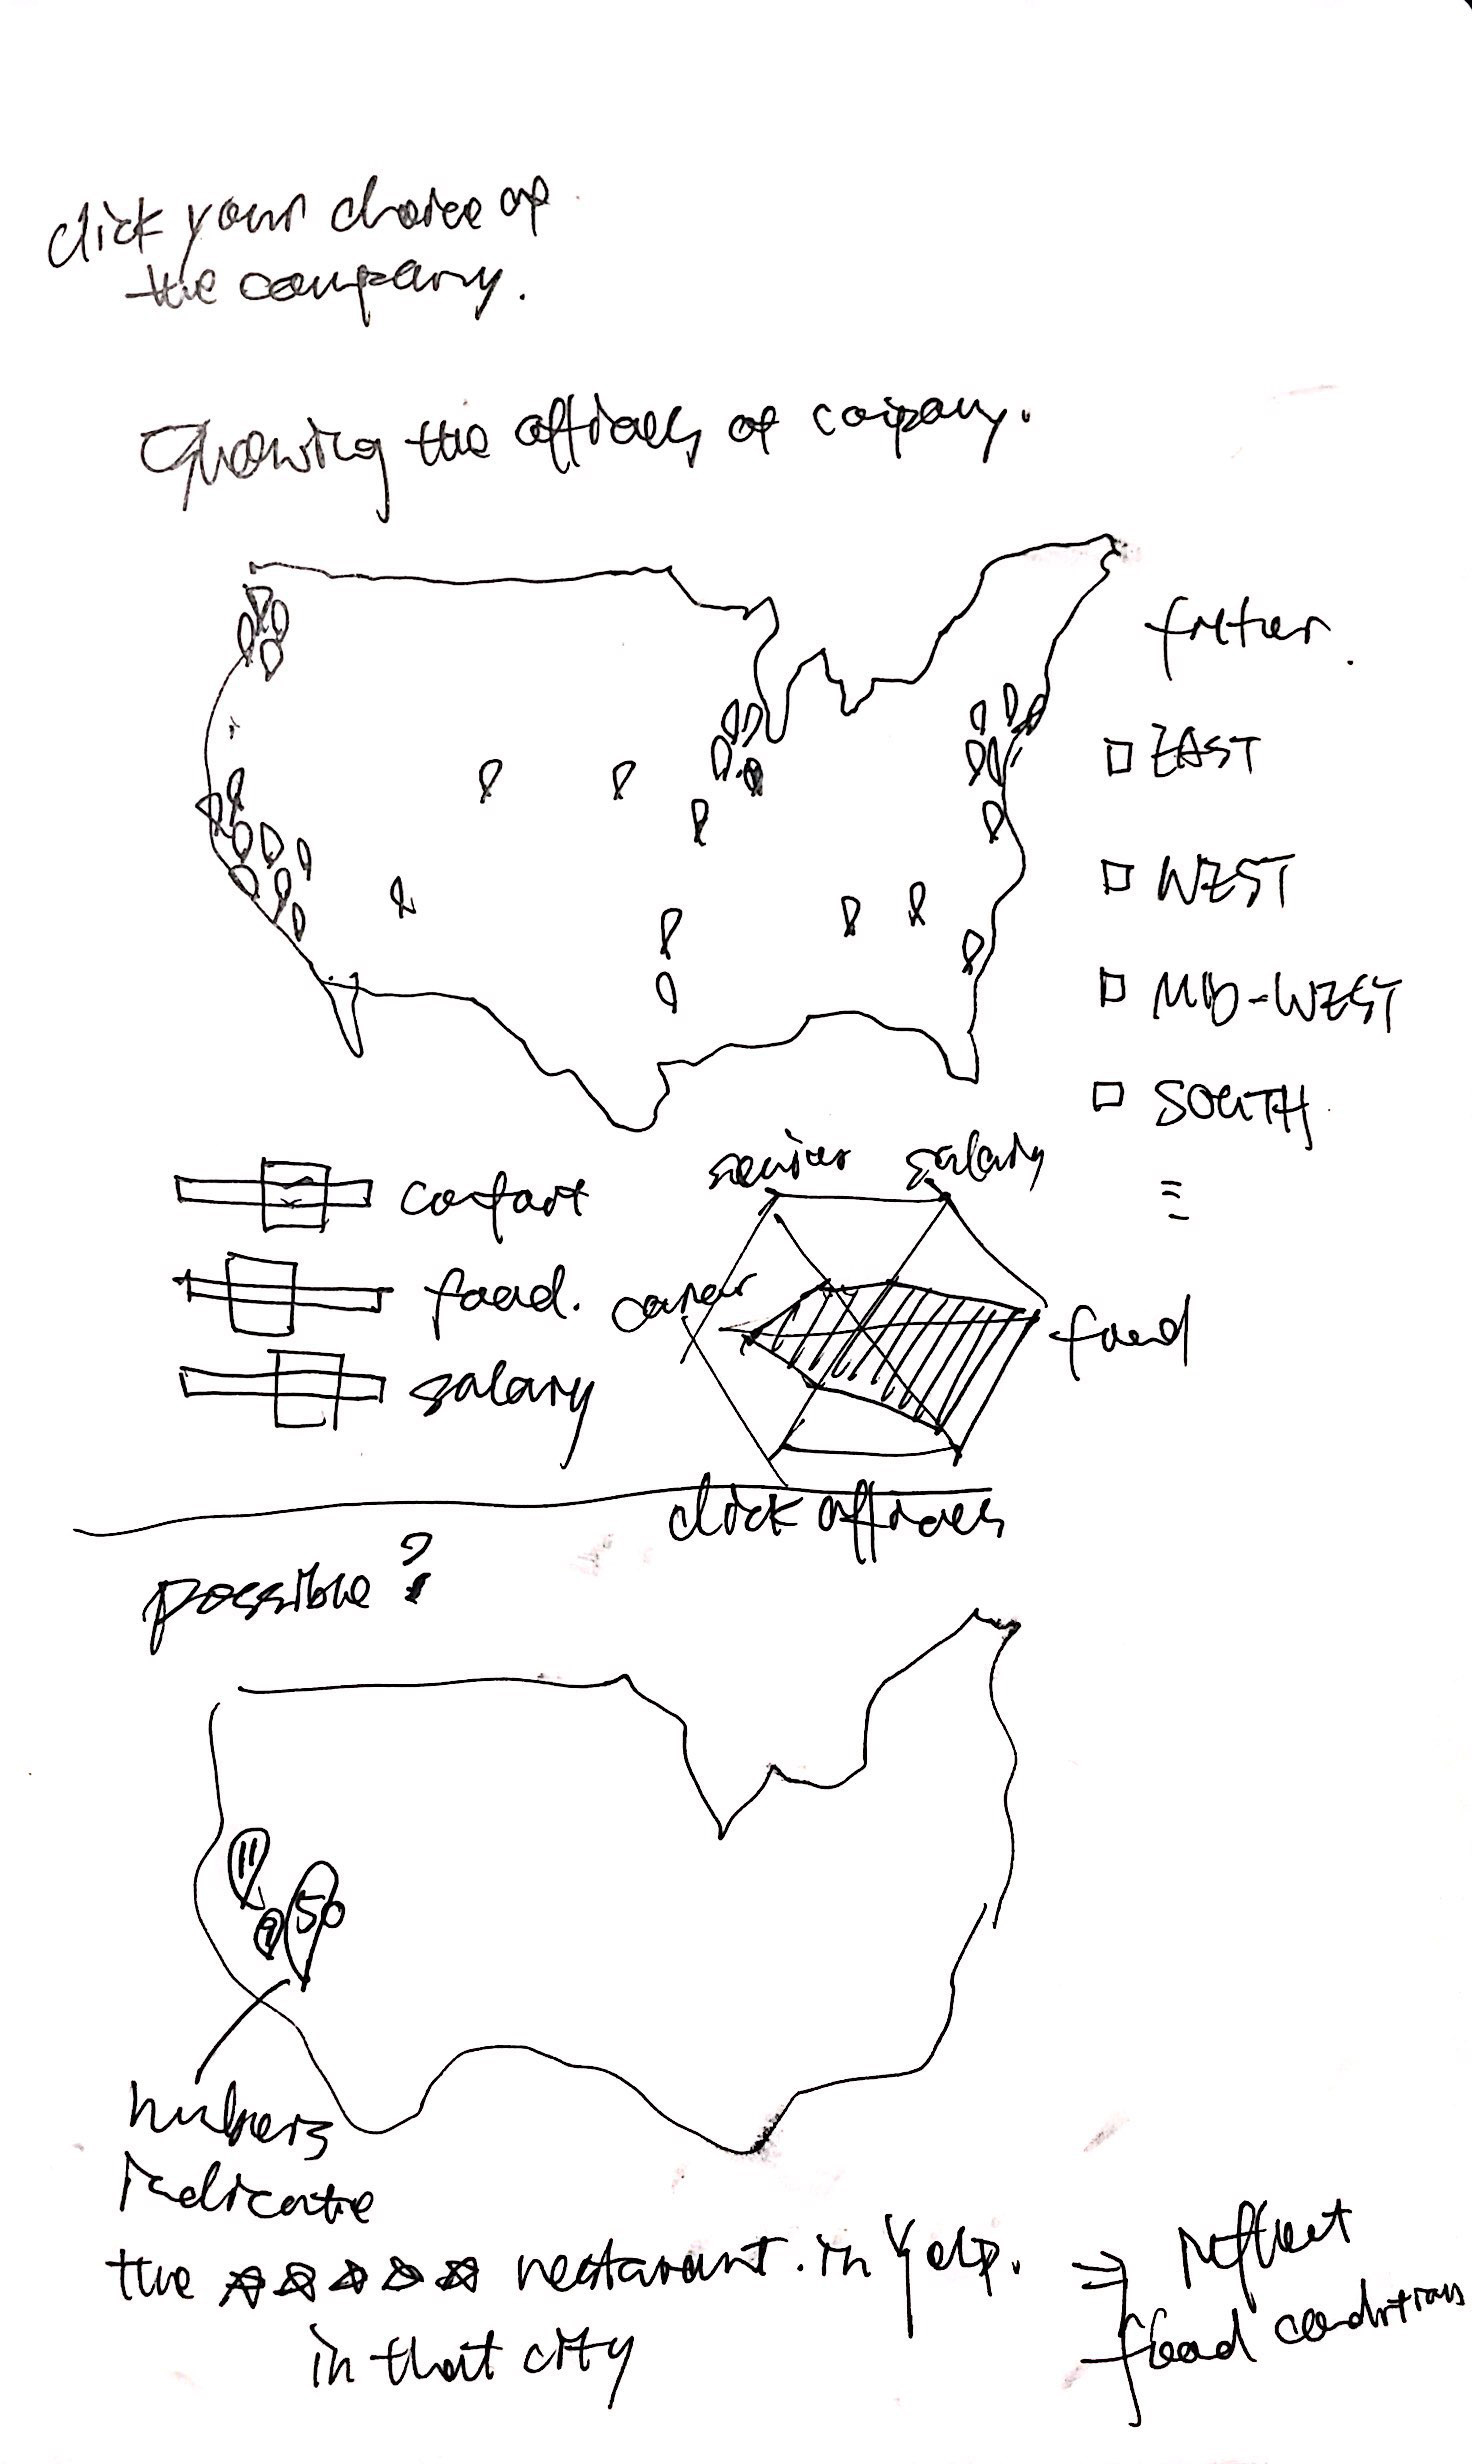 click your choice of
the company.
Showing the offices of company.
filter.
EAST
WEST
MID-WEST
SOUTH
senior salary
comfort
food.
career
food
salary
click offices
possible?
11
9
50
numbers
Indicate
the ☆☆☆☆☆ restaurant. in Yelp.
in that city
⇒ reflect
food conditions